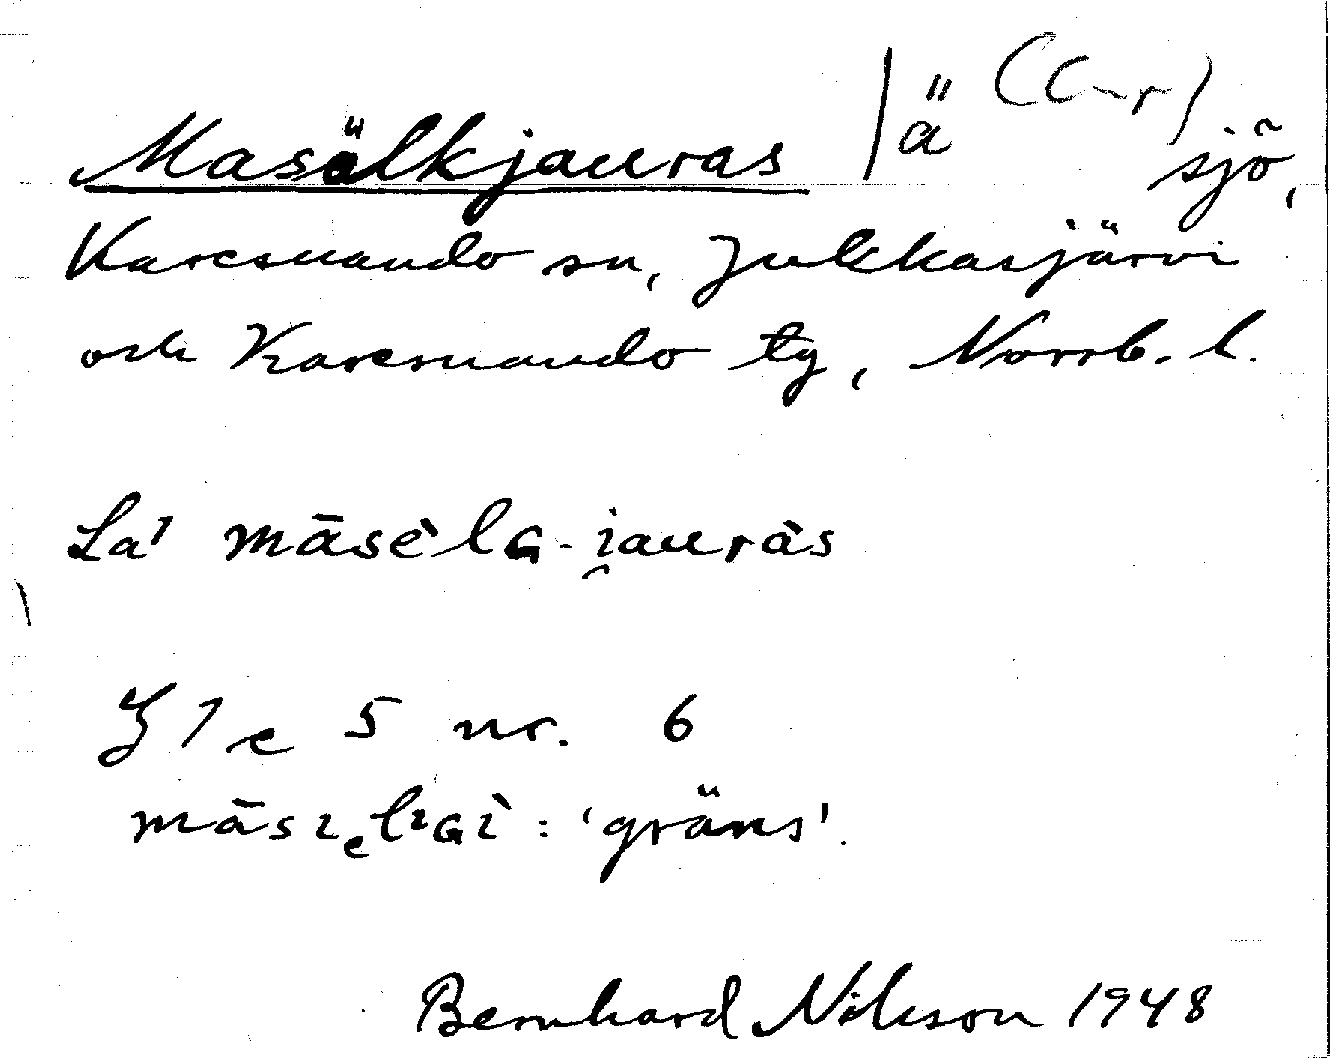 Masälkjauras |ä (C-r) sjö,
Karesuando sn, Jukkasjärvi
och Karesuando tg, Norrb. l.
La' māsèlɢ-i̯auràs
ʒ 1 e 5 nr. 6
: 'gräns'.
Bernhard Nilsson 1948